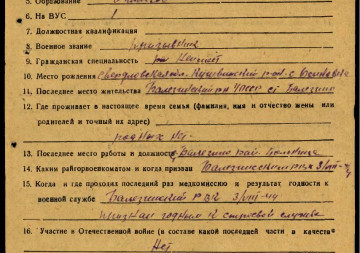 5. Образование
6. На ВУС 1
7. Должностная квалификация
8. Военное звание призывник
9. Гражданская специальность не имеет
10. Место рождения Свердловская Кушвинский р-он. с.
11. Последнее место жительства Балезинский р-н УАССР ст Балезино
12. Где проживает в настоящее время семья (фамилия, имя и отчество жены или
родителей и точный их адрес)
родных нет
13. Последнее место работы и должность Балезино
14. Каким райгорвоенкоматом и когда призван Балезинским
15. Когда и где проходил последний раз медкомиссию и результат годности к
военной службе Балезинский РВК 3/VIII-44
признан годным к строевой службе
16. Участие в Отечественной войне (в составе какой последней части в качестве
Нет